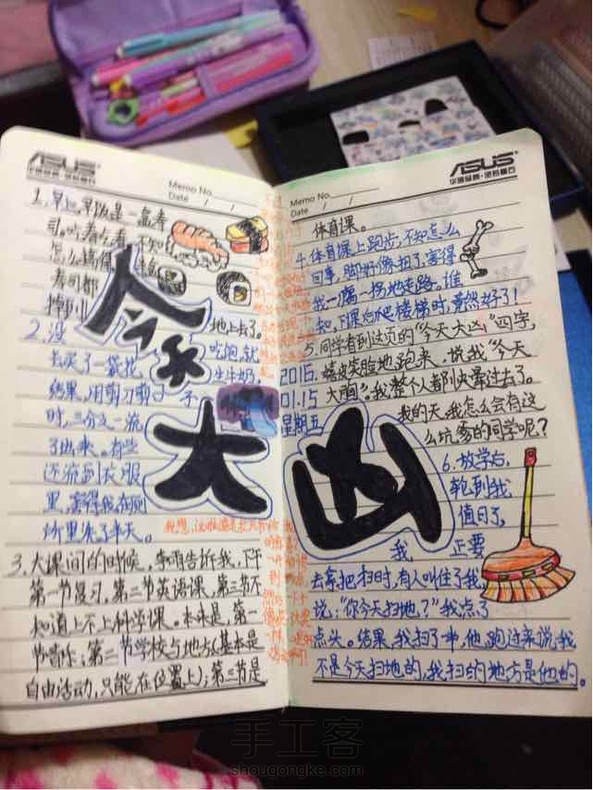 ASUS
华硕品质·坚若磐石
Memo No.
Date / /
1. 早上,早饭是一盒寿
司。吃着吃着,不知
怎么搞得
寿司都
掉到
地上去了。
2. 没吃饱,就
去买了一袋花生牛奶,
结果,用剪刀剪
时,三分之一流
了出来。有些
还流到衣服
里,害得我在厕
所里洗了半天。
3. 大课间的时候,李雨告诉我,下午
第一节复习,第二节英语课,第三节不
知道上不上科学课。本来是,第一
节音乐;第二节学校与地方(基本是
自由活动,只能在位置上);第三节是
今天大凶
ASUS
华硕品质·坚若磐石
Memo No.
Date / /
体育课。
4. 体育课上跑步,不知怎么
回事,脚好像扭了,害得
我一瘸一拐地走路。谁
知,下课后爬楼梯时,竟然好了!
5. 同学看到这页的“今天大凶”四字,
嬉皮笑脸地跑来,说我“今天
大胸”。我整个人都快晕过去了。
我的天,我怎么会有这
么坑爹的同学呢?
2016.
01.15
星期五
6. 放学后,
轮到我
值日了,
我正要
去拿把扫时,有人叫住了我,
说:“你今天扫地?”我点了
点头。结果,我扫了一半,他跑过来说,我
不是今天扫地的,我扫的地方是他的。
手工客
shougongke.com